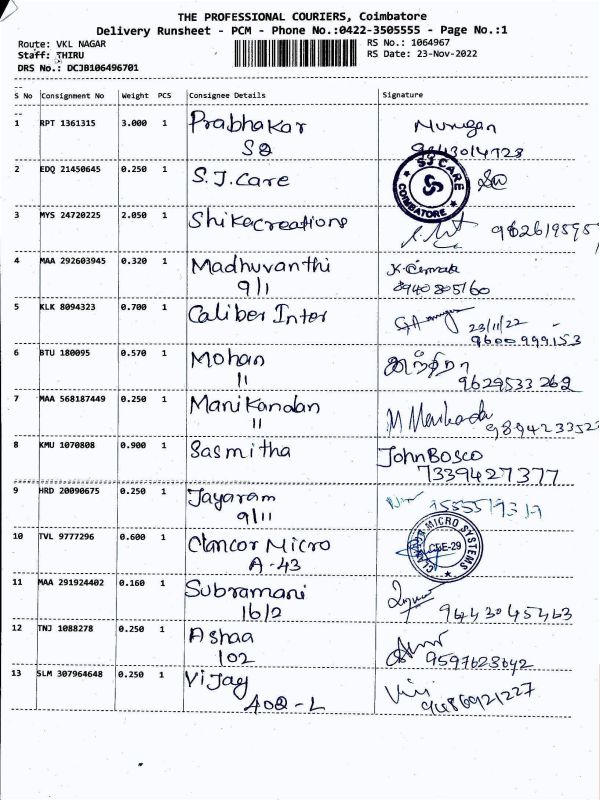 THE PROFESSIONAL COURIERS, Coimbatore
Delivery Runsheet - PCM - Phone No.:0422-3505555 - Page No.:1
Route: VKL NAGAR RS No.: 1064967
Staff: THIRU RS Date: 23-Nov-2022
DRS No.: DCJB106496701
S No Consignment No Weight PCS Consignee Details Signature
1 RPT 1361315 3.000 1 Prabhakar Murugan
SQ
2 EDQ 21450645 0.250 1 S.J.Care
SJ CARE
COIMBATORE
3 MYS 24720225 2.050 1 Shikacreations
4 MAA 292603945 0.320 1 Madhuvanthi
9/1 8940805160
5 KLK 8094323 0.700 1 Caliber Inter
23/11/22
9600999153
6 BTU 180095 0.570 1 Mohan
11 9629533262
7 MAA 568187449 0.250 1 Manikandan
11
8 KMU 1070808 0.900 1 Sasmitha John Bosco
7339427377
9 HRD 20090675 0.250 1 Jayaram
9/11
10 TVL 9777296 0.600 1 Clancor Micro
A-43
MICRO SYSTEMS
CBE-29
11 MAA 291924402 0.160 1 Subramani
16/2 9643045463
12 TNJ 1088278 0.250 1 Ashaa
102 9597623642
13 SLM 307964648 0.250 1 Vijay
9486921227